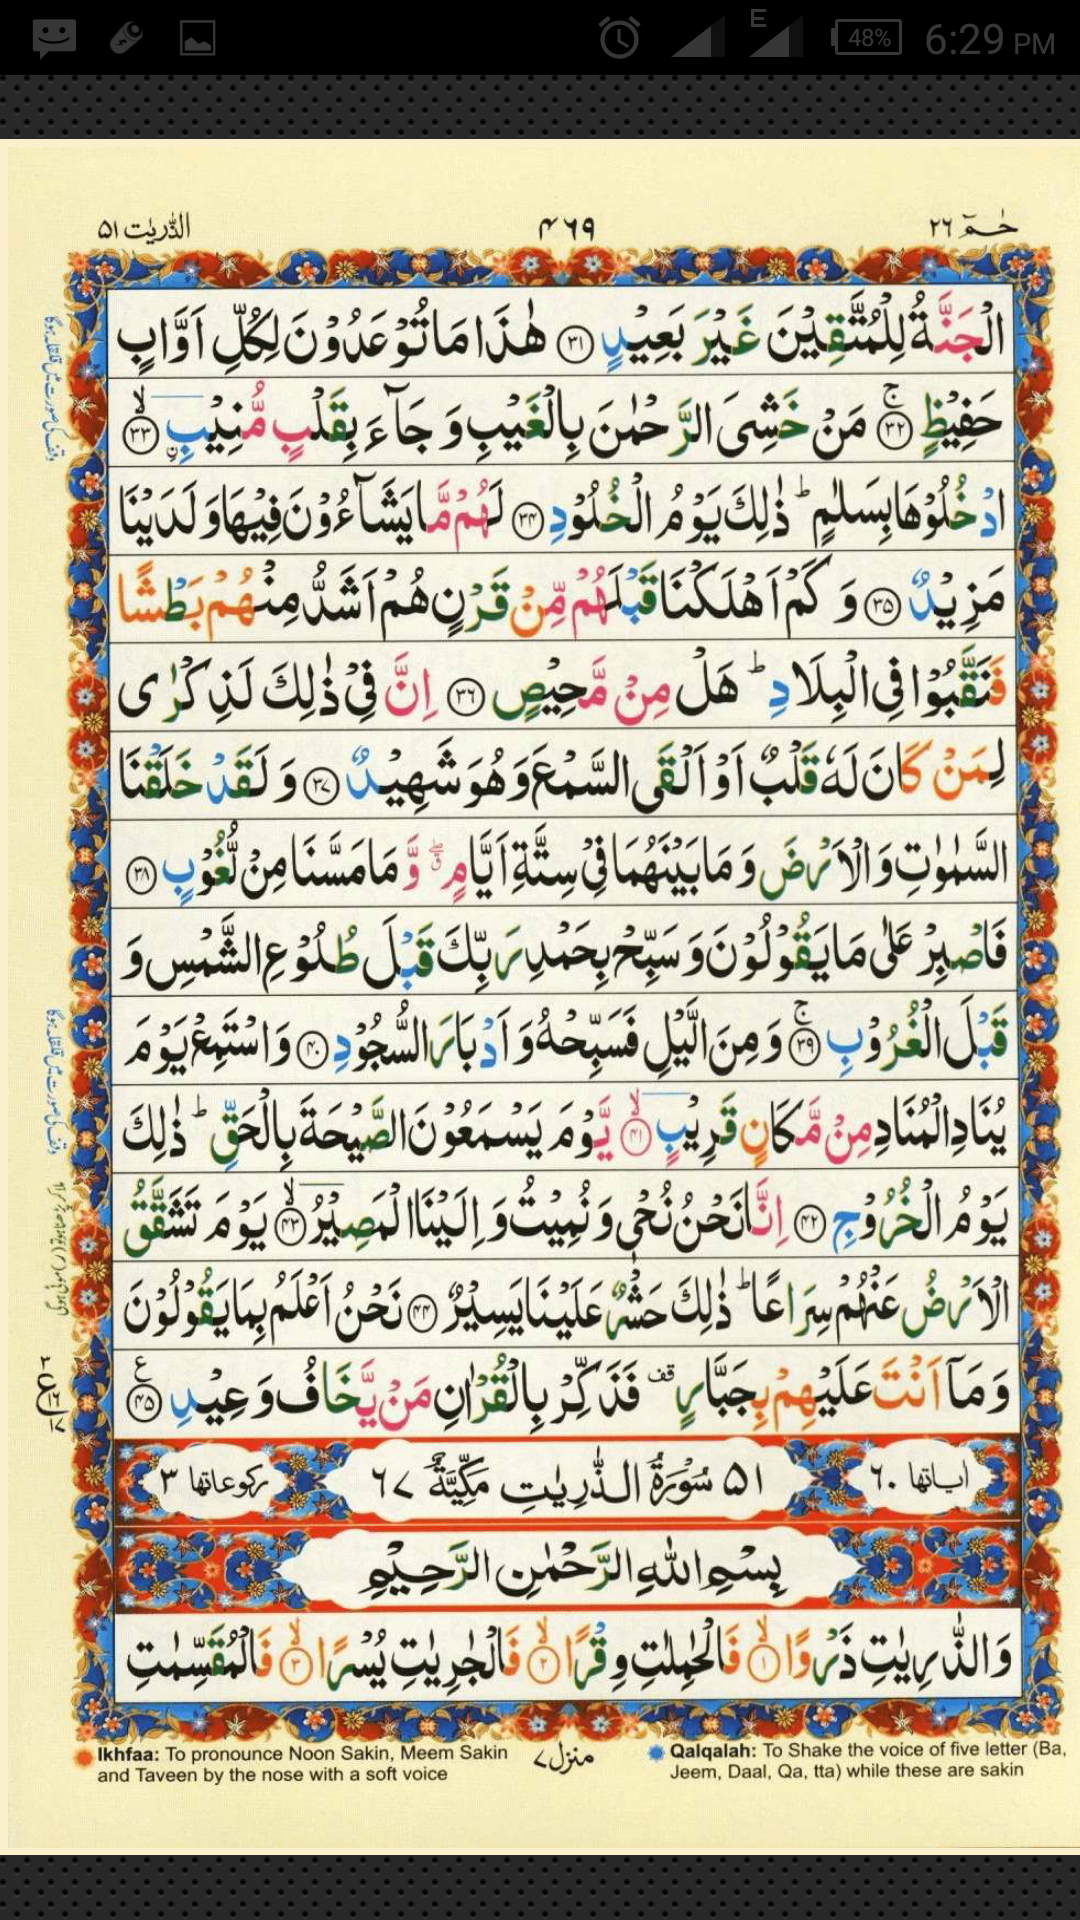 48% 6:29 PM
حٰمٓ ٢٦
٤٦٩
الذّٰرِيٰت ٥١
الْجَنَّةُ لِلْمُتَّقِيْنَ غَيْرَ بَعِيْدٍ ﴿٣١﴾ هٰذَا مَا تُوْعَدُوْنَ لِكُلِّ اَوَّابٍ
حَفِيْظٍ ﴿٣٢﴾ ۚ مَنْ خَشِىَ الرَّحْمٰنَ بِالْغَيْبِ وَ جَآءَ بِقَلْبٍ مُّنِيْبِ ۙ ﴿٣٣﴾
ادْخُلُوْهَا بِسَلٰمٍ ؕ ذٰلِكَ يَوْمُ الْخُلُوْدِ ﴿٣٤﴾ لَهُمْ مَّا يَشَآءُوْنَ فِيْهَا وَ لَدَيْنَا
مَزِيْدٌ ﴿٣٥﴾ وَ كَمْ اَهْلَكْنَا قَبْلَهُمْ مِّنْ قَرْنٍ هُمْ اَشَدُّ مِنْهُمْ بَطْشًا
فَنَقَّبُوْا فِى الْبِلَادِ ؕ هَلْ مِنْ مَّحِيْصٍ ﴿٣٦﴾ اِنَّ فِىْ ذٰلِكَ لَذِكْرٰى
لِمَنْ كَانَ لَهٗ قَلْبٌ اَوْ اَلْقَى السَّمْعَ وَ هُوَ شَهِيْدٌ ﴿٣٧﴾ وَ لَقَدْ خَلَقْنَا
السَّمٰوٰتِ وَ الْاَرْضَ وَ مَا بَيْنَهُمَا فِىْ سِتَّةِ اَيَّامٍ ۖ وَّ مَا مَسَّنَا مِنْ لُّغُوْبٍ ﴿٣٨﴾
فَاصْبِرْ عَلٰى مَا يَقُوْلُوْنَ وَ سَبِّحْ بِحَمْدِ رَبِّكَ قَبْلَ طُلُوْعِ الشَّمْسِ وَ
قَبْلَ الْغُرُوْبِ ۚ ﴿٣٩﴾ وَ مِنَ الَّيْلِ فَسَبِّحْهُ وَ اَدْبَارَ السُّجُوْدِ ﴿٤٠﴾ وَ اسْتَمِعْ يَوْمَ
يُنَادِ الْمُنَادِ مِنْ مَّكَانٍ قَرِيْبٍ ۙ ﴿٤١﴾ يَّوْمَ يَسْمَعُوْنَ الصَّيْحَةَ بِالْحَقِّ ؕ ذٰلِكَ
يَوْمُ الْخُرُوْجِ ﴿٤٢﴾ اِنَّا نَحْنُ نُحْىٖ وَ نُمِيْتُ وَ اِلَيْنَا الْمَصِيْرُ ۙ ﴿٤٣﴾ يَوْمَ تَشَقَّقُ
الْاَرْضُ عَنْهُمْ سِرَاعًا ؕ ذٰلِكَ حَشْرٌ عَلَيْنَا يَسِيْرٌ ﴿٤٤﴾ نَحْنُ اَعْلَمُ بِمَا يَقُوْلُوْنَ
وَ مَآ اَنْتَ عَلَيْهِمْ بِجَبَّارٍ قف فَذَكِّرْ بِالْقُرْاٰنِ مَنْ يَّخَافُ وَعِيْدِ ﴿٤٥﴾ ع
اٰياتها ٦٠
٥١ سُوْرَةُ الذّٰرِيٰتِ مَكِّيَّةٌ ٦٧
ركوعاتها ٣
بِسْمِ اللهِ الرَّحْمٰنِ الرَّحِيْمِ
وَ الذّٰرِيٰتِ ذَرْوًا ۙ ﴿١﴾ فَالْحٰمِلٰتِ وِقْرًا ۙ ﴿٢﴾ فَالْجٰرِيٰتِ يُسْرًا ۙ ﴿٣﴾ فَالْمُقَسِّمٰتِ
Ikhfaa: To pronounce Noon Sakin, Meem Sakin
and Taveen by the nose with a soft voice
منزل ٧
Qalqalah: To Shake the voice of five letter (Ba,
Jeem, Daal, Qa, tta) while these are sakin